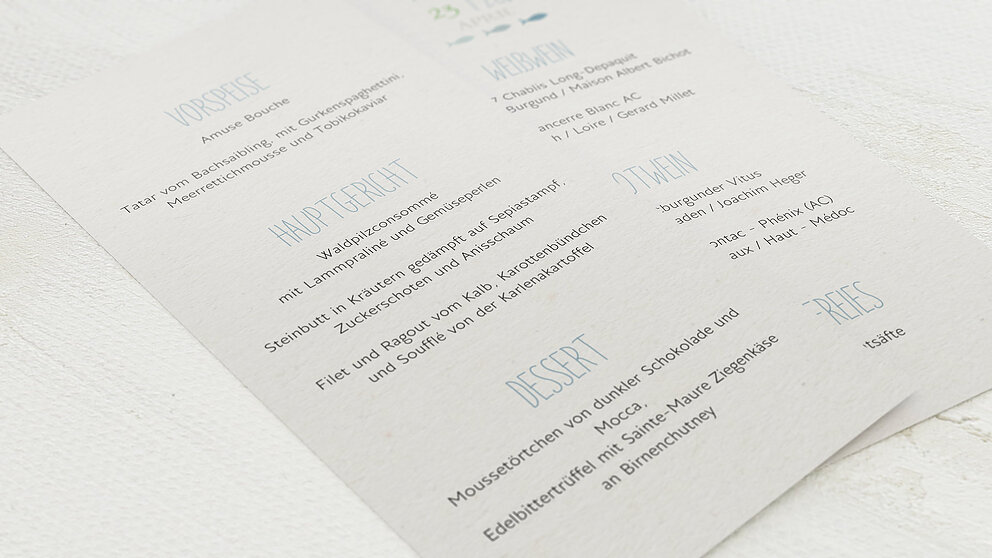 VORSPEISE
Amuse Bouche
Tatar vom Bachsaibling, mit Gurkenspaghettini,
Meerrettichmousse und Tobikokaviar
HAUPTGERICHT
Waldpilzconsommé
mit Lammpraliné und Gemüseperlen
Steinbutt in Kräutern gedämpft auf Sepiastampf,
Zuckerschoten und Anisschaum
Filet und Ragout vom Kalb, Karottenbündchen
und Soufflé von der Karlenakartoffel
DESSERT
Moussetörtchen von dunkler Schokolade und
Mocca,
Edelbittertrüffel mit Sainte-Maure Ziegenkäse
an Birnenchutney
23
WEIßWEIN
7 Chablis Long-Depaquit
Burgund / Maison Albert Bichot
ancerre Blanc AC
h / Loire / Gerard Millet
OTWEIN
burgunder Vitus
aden / Joachim Heger
ontac - Phénix (AC)
aux / Haut - Médoc
-REIES
tsäfte